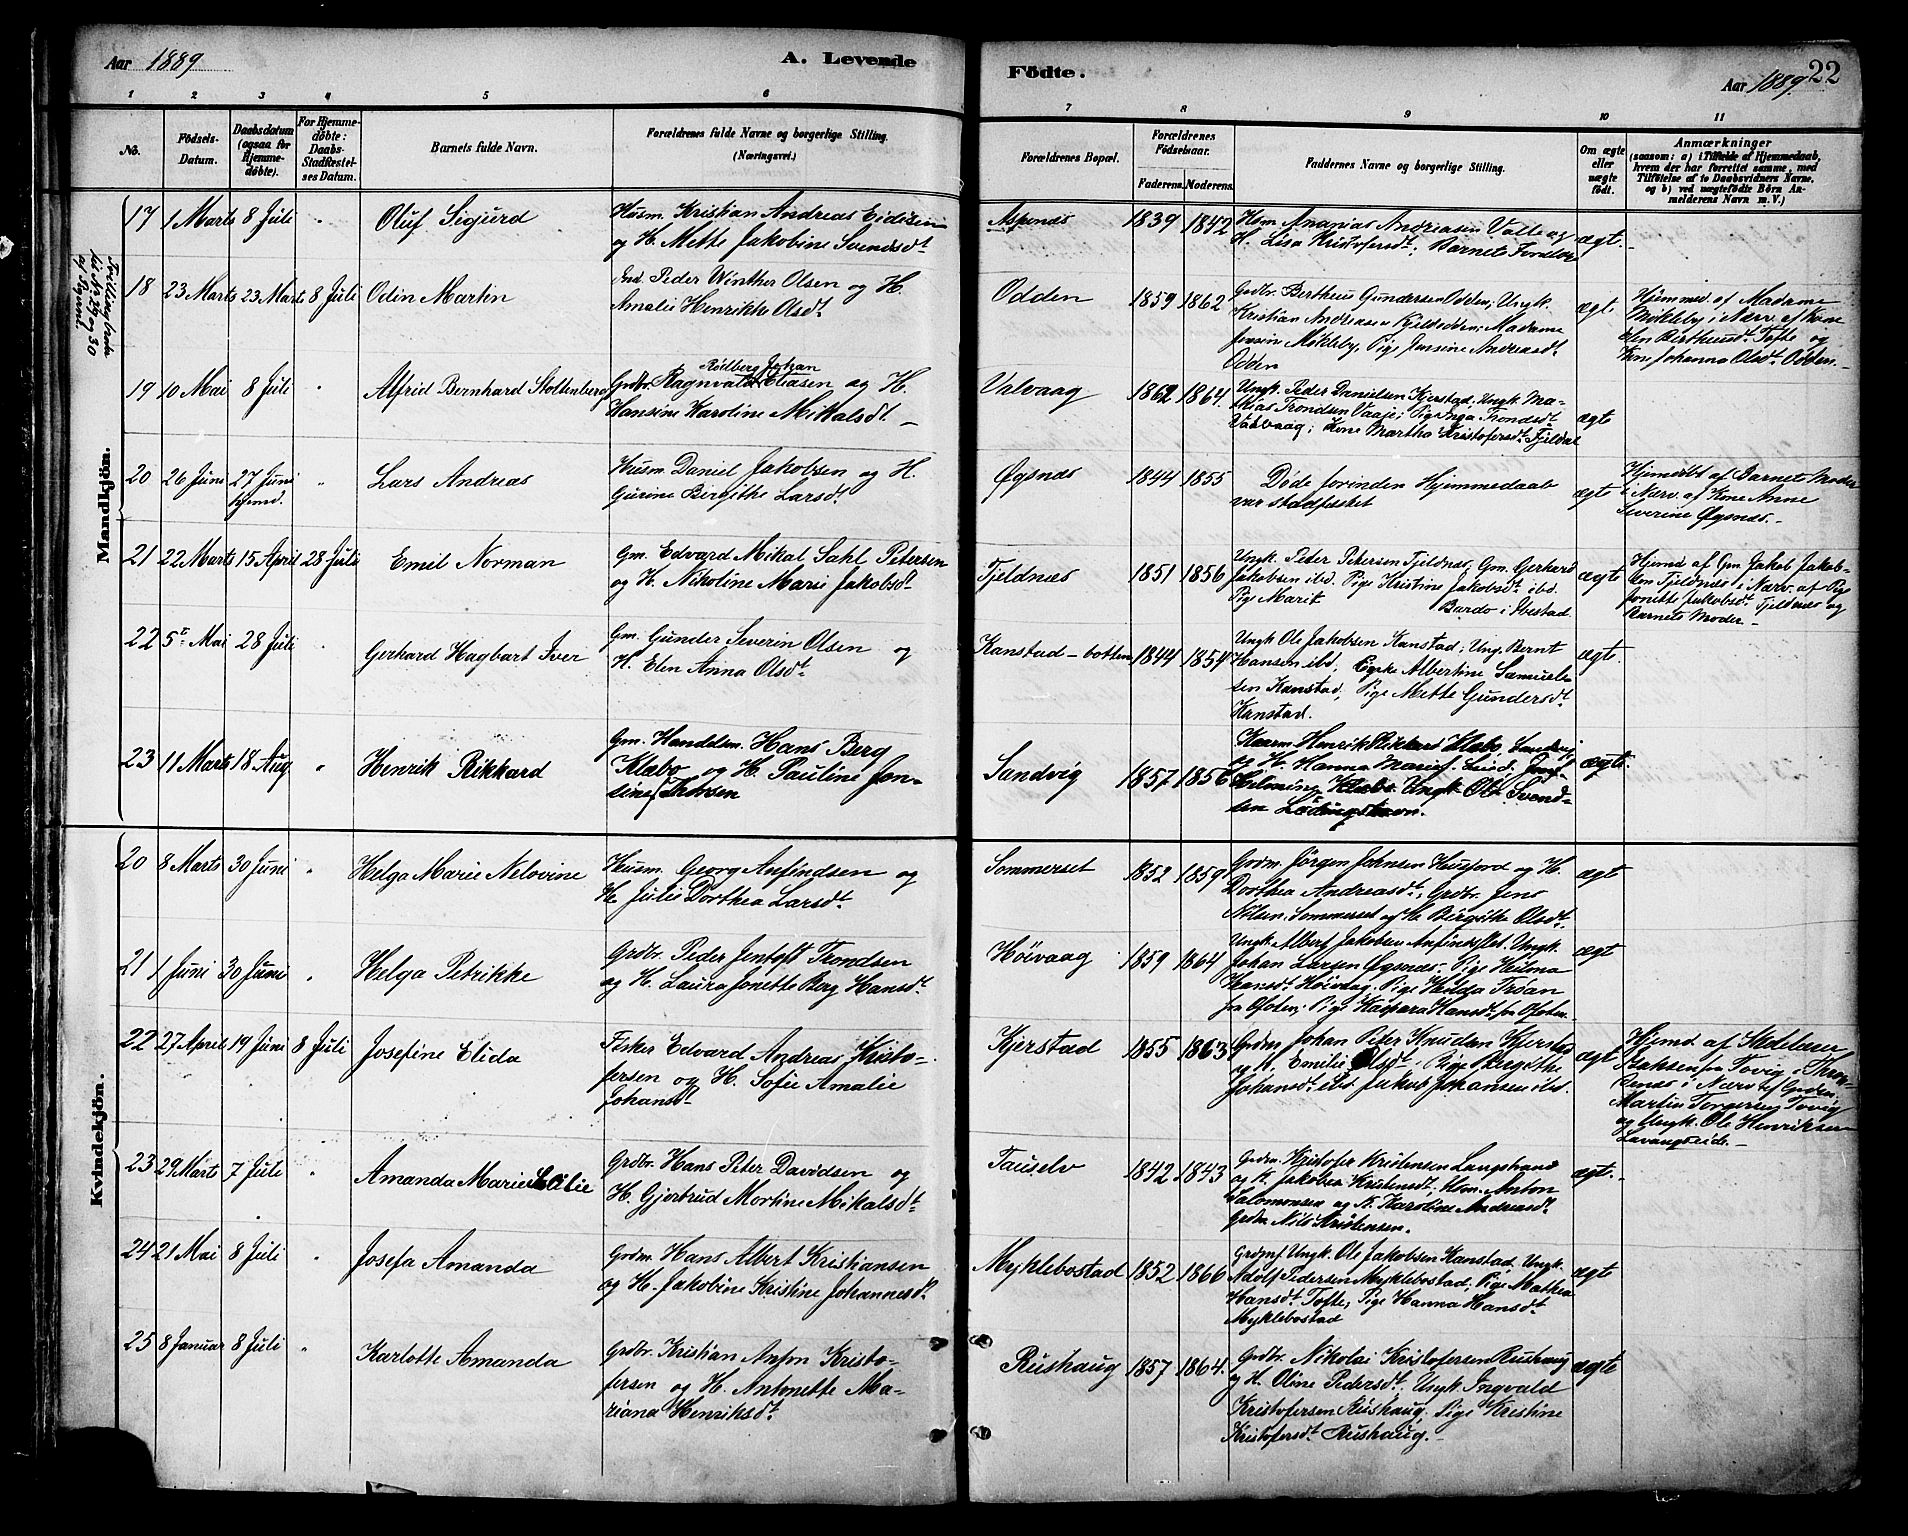 Aar 1889
A. Levende
Födte.
Aar 1889
22
1 2 3 4 5 6 7 8 9 10 11
No.
Födsels-
Datum.
Daabsdatum
(ogsaa for
Hjemme-
döbte).
For Hjemme-
döbte:
Daabs-
Stadfæstel-
ses Datum.
Barnets fulde Navn.
Forældrenes fulde Navne og borgerlige Stilling.
(Næringsvei.)
Forældrenes Bopæl.
Forældrenes
Födselsaar.
Faderens. Moderens.
Faddernes Navne og borgerlige Stilling.
Om ægte
eller
uægte
födt.
Anmærkninger
(saasom: a) i Tilfælde af Hjemmedaab,
hvem der har forrettet samme, med
Tilföielse af to Daabsvidners Navne,
og b) ved uægtefödte Börn An-
melderens Navn m. V.)
Mandkjön.
17 1 Marts 8 Juli " Oluf Sigurd
Husm. Kristian Andreas Eidesen
og H. Mette Jakobine Svendsdt.
Aspenes 1839 1842
Hsm. Ananias Andreasen Valle og
H. Lisa Kristofersdt; Barnets Forældre
ægt.
18 23 Marts 23 Marts 8 Juli Odin Martin
Ind. Peder Winther Olsen og H.
Amalie Henrikke Olsdt.
Odden 1859 1862
Grdbr. Bertheus Gundersen Odden; Ungk.
Kristian Andreasen Kjeldsodden; Madame
Jensin Mökleby, Pige Jensine Andreasdt.
Odden
ægt
Hjemmed. af Madame
Mökleby i Nærv. af Kone
Elen Bertheusdt. Tofte og
Kone Johanna Olsdt. Odden.
19 10 Mai 8 Juli " Alfrid Bernhard Stoltenberg
Rödberg Johan
Grdbr. Ragnvald Eliasen og H.
Hansine Karoline Mikalsdt.
Valvaag 1862 1864
Ungk. Peder Danielsen Kjerstad, Ungk. Ma-
thias Trondsen Vaaje; Pige Inga Trondsdt.
Valvaag; Kone Martha Kristofersdt. Fjeldal
ægte
20 26 Juni 27 Juni
hjemd.
" Lars Andreas
Husm. Daniel Jakobsen og H.
Gurine Bergithe Larsdt.
Øgsnes 1844 1855
Døde forinden Hjemmedaab
var stadfæstet
ægte
Hjemdöbt af Barnets Moder
i Nærv. af Kone Anne
Severine Øgsnes.
21 22 Marts 15 April 28 Juli Emil Norman
Gm. Edvard Mikal Sahl Petersen
og H. Nikoline Marie Jakobsdt.
Fjeldnæs 1851 1856
Ungk. Peter Petersen Fjeldnæs, Gm. Gerhard
Jakobsen ibd. Pige Kristine Jakobsdt. ibd.
Pige Marit Bardo i Ibestad.
ægte
Hjemd af Gm. Jakob Jakob-
sen Fjeldnæs i Nærv. af Pige
Jonette Jakobsdt. Fjeldnæs og
Barnets Moder.
22 5te Mai 28 Juli " Gerhard Hagbart Iver
Gm. Gunder Severin Olsen og
H. Elen Anna Olsdt.
Kanstad-botten 1844 1854
Ungk Ole Jakobsen Kanstad; Ung. Bernt
Hansen ibd; Albertine Samuel-
sen Kanstad, Pige Mette Gundersdt.
Kanstad.
ægte.
23 11 Marts 18 Aug " Henrik Rikkard
Gm. Handelsm. Hans Berg
Klæbo og H. Pauline Jon-
sine Thorsen
Sandvig 1857 1856
Henrik Rikkart Klæbo, Sandvig
og H. Hanna Marie
Klæbo. Ungk. Ole Svend-
sen Lödingshavn.
ægte.
Kvindekjön.
20 8 Marts 30 Juni " Helga Marie Nelovine
Husm. Georg Anfindsen og
H. Julie Dorthea Larsdt.
Sommerset 1852 1859
Grdm. Jørgen Johnsen Husfjord og H.
Dorthea Andreasdt; Grdbr. Jens
Nilsen Sommerset og H. Birgitte Olsdt.
ægt
21 1 Juni 30 Juni " Helga Petrikke
Grdbr. Peder Jentoft Trondsen
og H. Laura Jonette Berg Hansdt.
Höivaag 1859 1864
Ungk. Albert Jakobsen. Ungk.
Johan Larsen Øgsnes. Pige Heilma
Hansdt. Höivaag. Pige Hedda Tröan
fra Ofoten; Pige Kaspara Hansdt. fra Ofoten.
ægt
22 27 April 19 Juni 8 Juli Josefine Elida
Fisker Edvard Andreas Kristo-
fersen og H. Sofie Amalie
Johansdt.
Kjerstad 1855 1863
Grdm. Johan Peter Knudsen Kjerstad
og H. Emilie Olsdt; Pige Bergithe
Johansdt. ibd Jakob Johansen ibd.
ægt
Hjemd. af
Isaksen fra Tovig i Thron-
denes i Nærv. af Grdm.
Martin Torgersen Tovig
og Ungk. Ole Henriksen
Lavangseide.
23 29 Marts 7 Juli " Amanda Marie
Grdbr. Hans Peter Davidsen og
H. Gjertrud Mortine Mikalsdt.
Tauselv 1842 1843
Grdm Kristofer Kristensen Langstrand
og H. Jakobea Kristensdt; Hsm. Anton
Salomonsen og H. Karoline Andreasdt.
Grdm. Nils Kristensen.
ægt.
24 21 Mai 8 Juli " Josefa Amanda
Grdm. Hans Albert Kristiansen
og H. Jakobine Kristine Johannesdt.
Myklebostad 1852 1866
Ungk. Ole Jakobsen Kanstad, Ungk.
Adolf Pedersen Myklebostad; Pige Mathea
Hansdt. Tofte; Pige Hanna Hansdt.
Myklebostad
ægte
25 8 Januar 8 Juli " Karlotte Amanda
Grdbr. Kristian Anton Kristo-
fersen og H. Antonette Ma-
riana Henriksdt.
Rushaug 1857 1864.
Grdbr. Nikolai Kristofersen Rushaug
og H. Oline Pedersdt. Ungk. Ingvald
Kristofersen Rushaug; Pige Kristine
Kristofersdt. Rushaug.
ægte